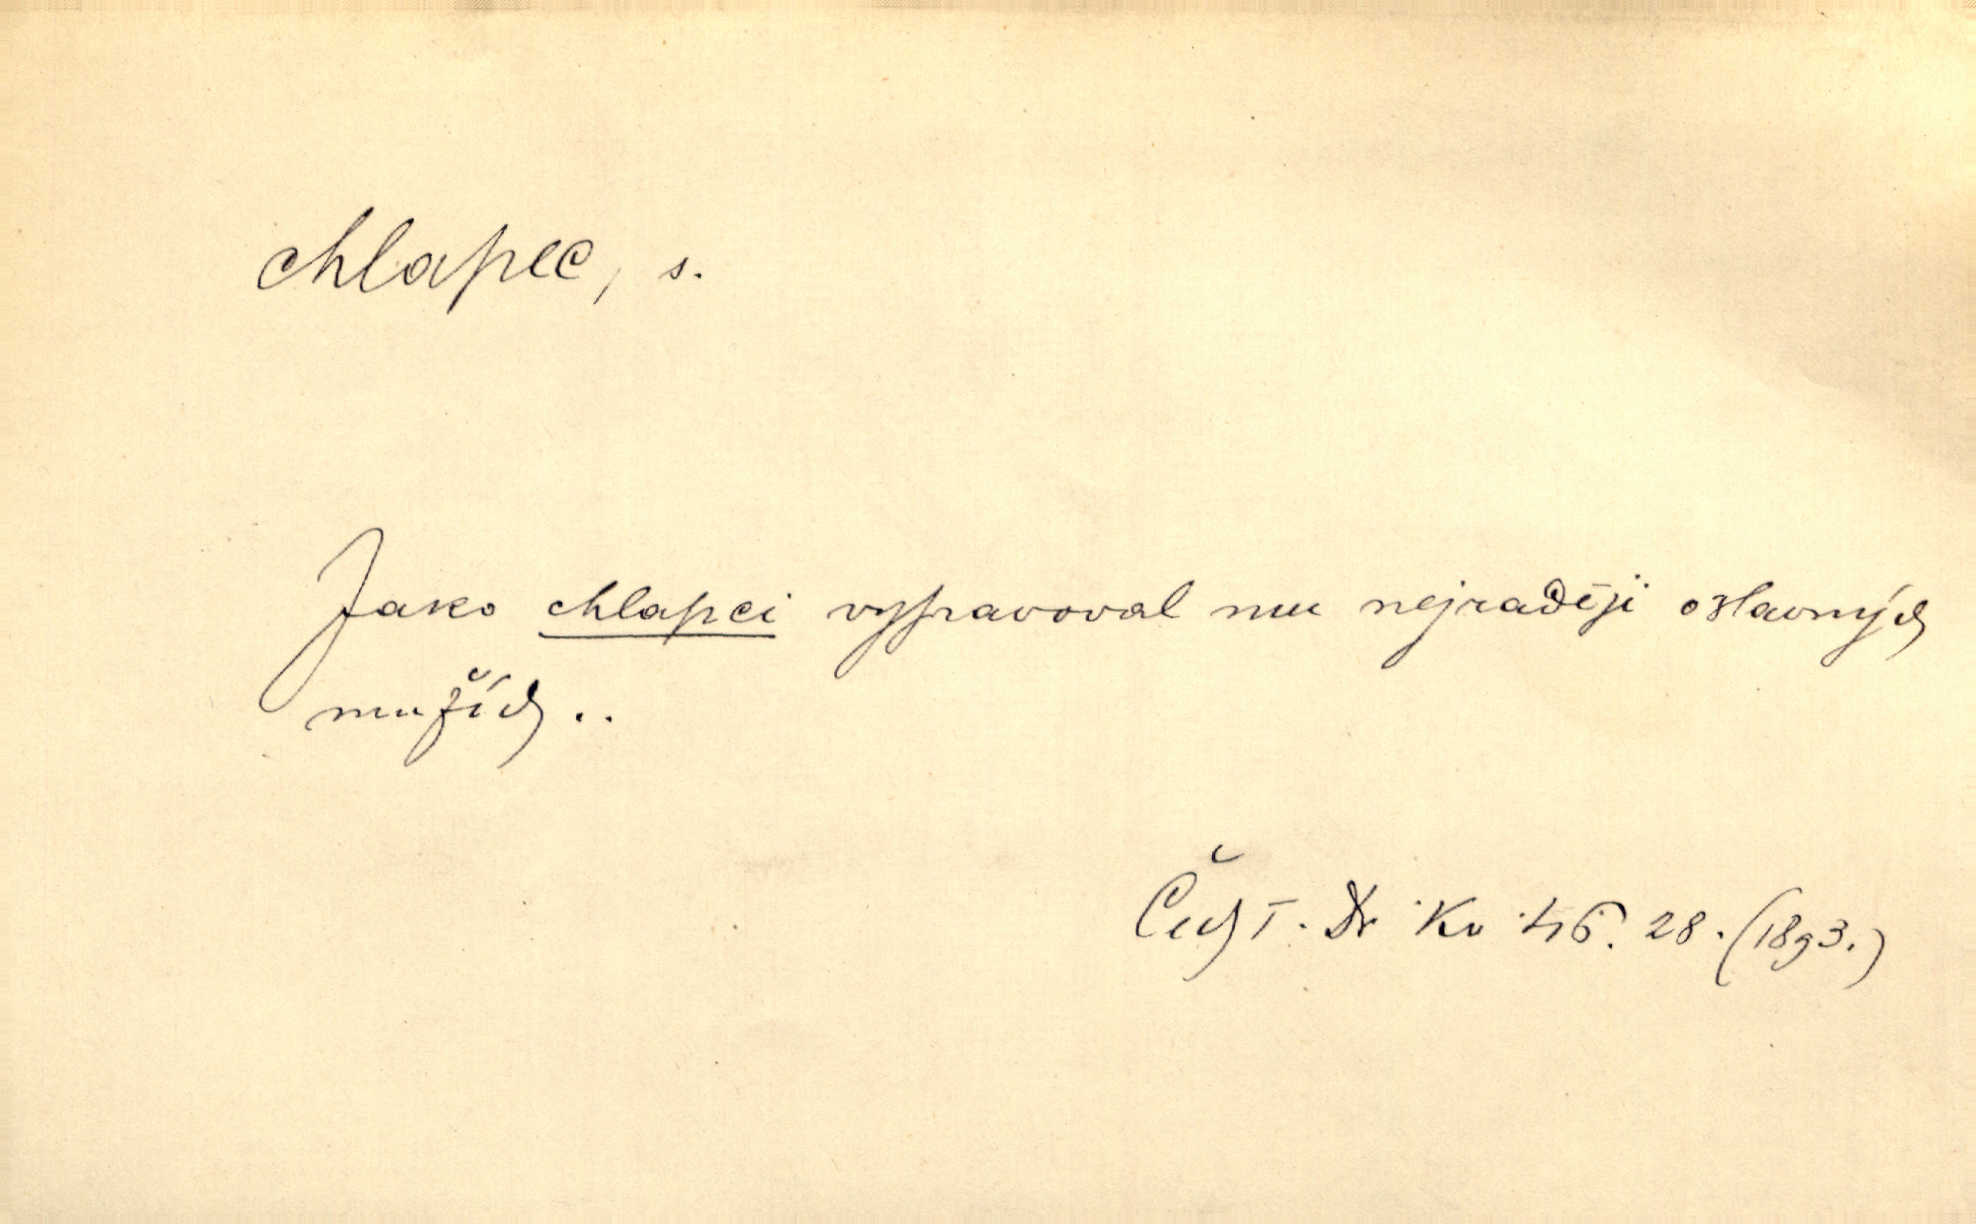 chlapec, s.
Jako chlapci vypravoval mu nejraději o slavných
mužích ..
Čech I. Dr. Kv. 46. 28. (1893.)